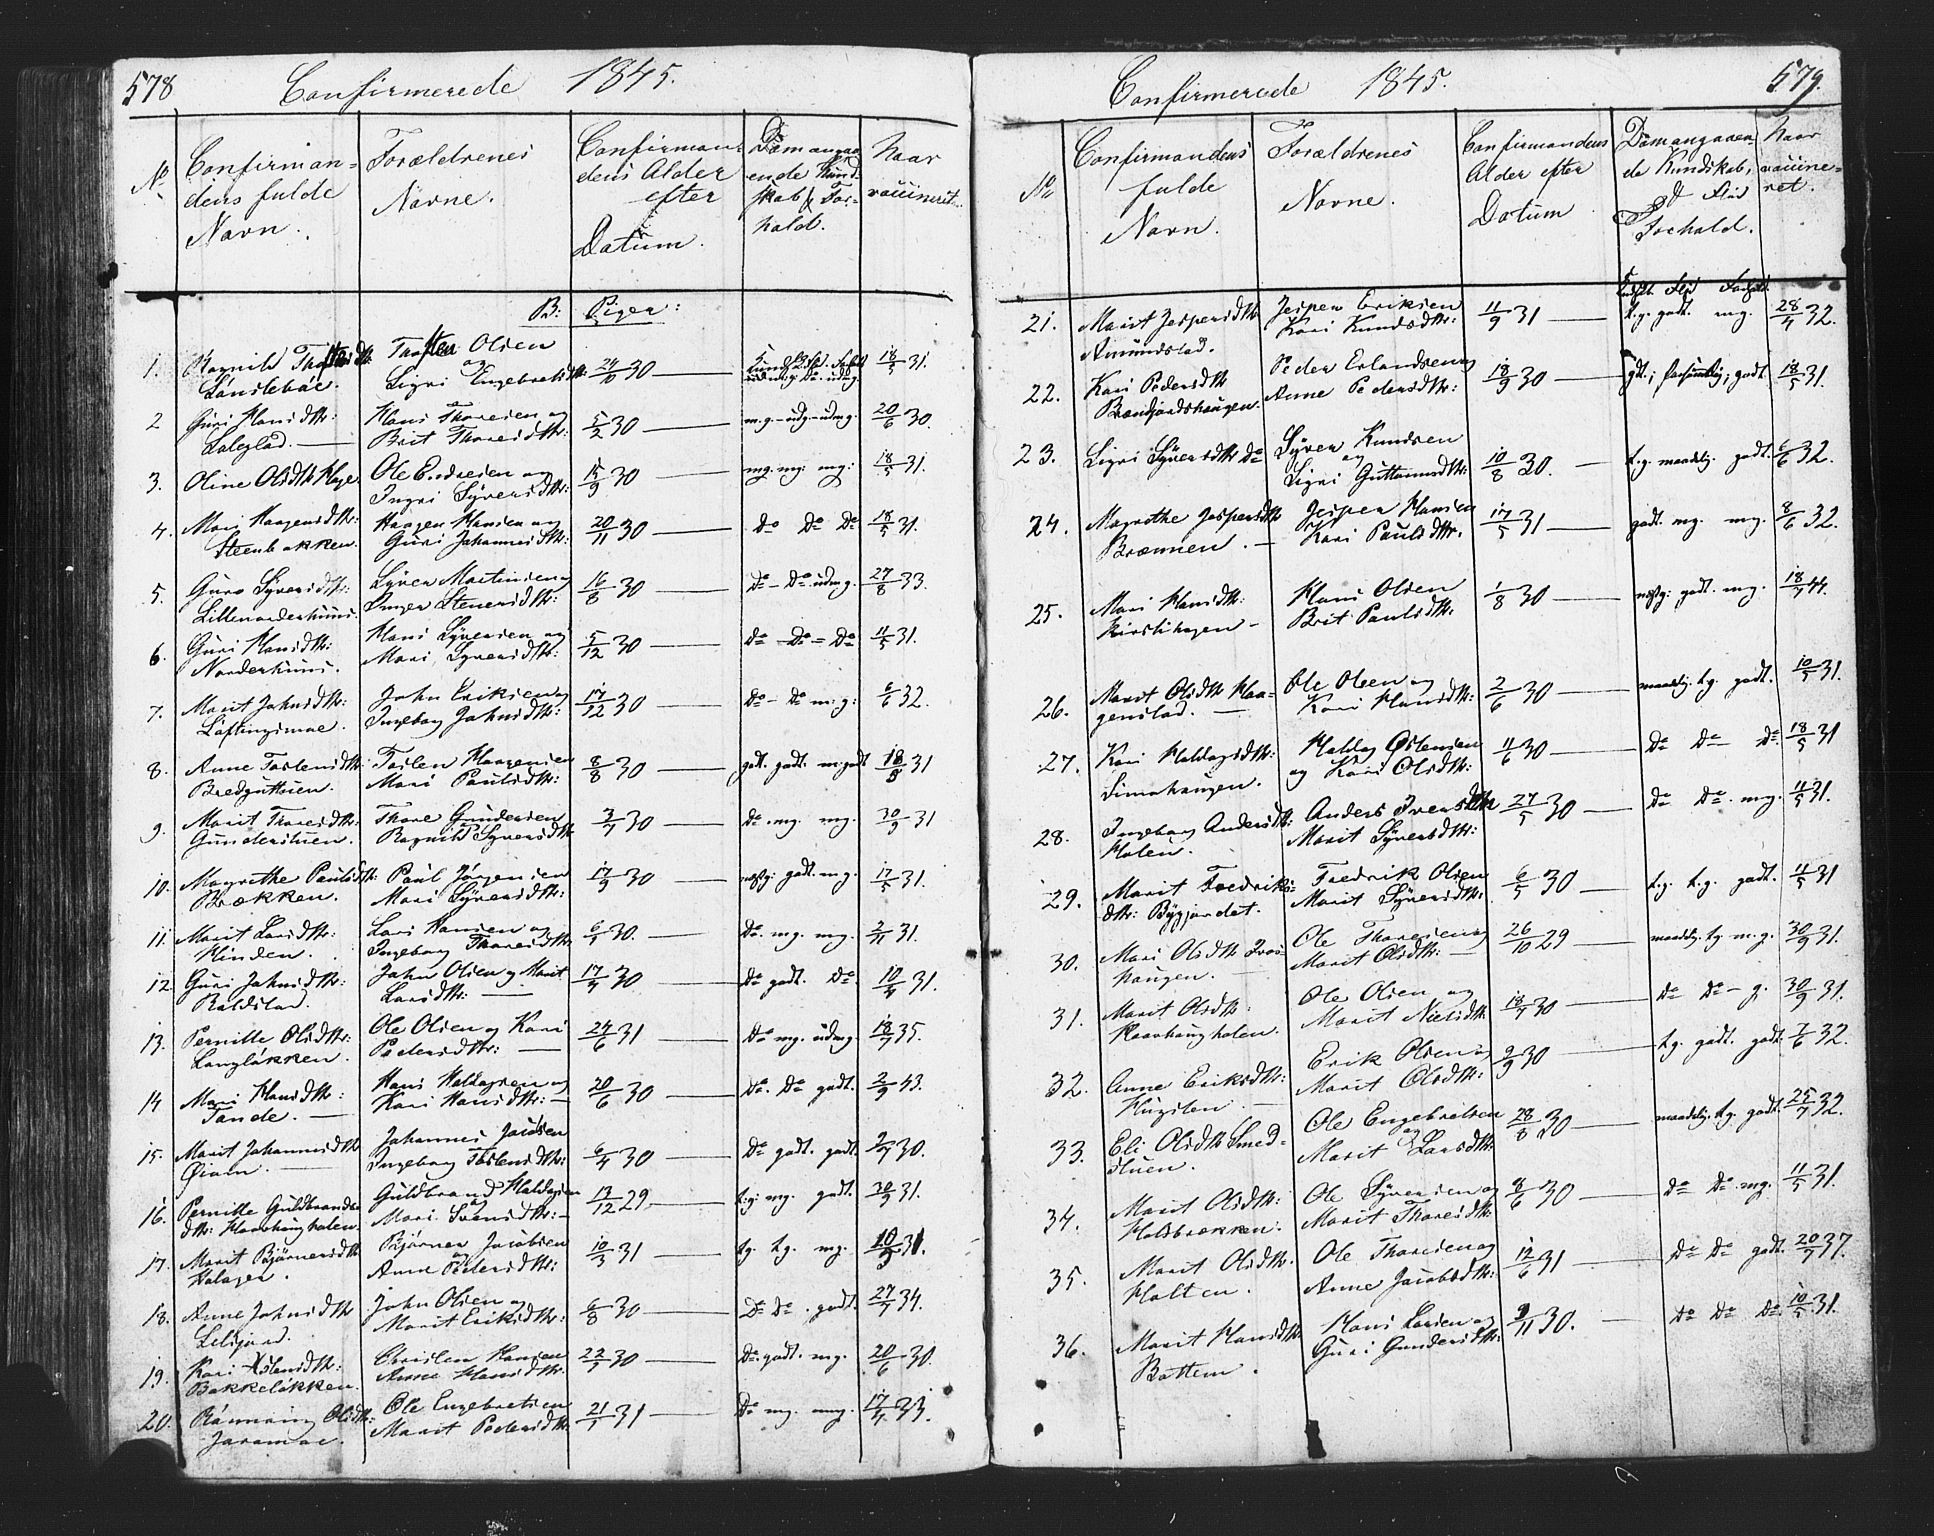 578
Confirmerede 1845.
No
Confirman-
dens fulde
Navn.
Forældrenes
Navne.
Confirman-
dens Alder
efter
Datum.
Dom angaa-
ende Kund-
skab & For-
hold.
Naar
vaccineret.
B: Piger:
1. Ragnild
Thosten Olsen
og
Sigri Engebretsdtr: 24/10 30 18/5 31.
2 Guri Hansdtr:
Hans Thoresen og
Brit Thoresdtr: 5/2 30 m.g.-udg.-udm.g. 20/6 30.
3. Oline Olsdtr Klype
Ole Endresen og
Ingri Syversdtr: 15/9 30 mg. mg: mg: 18/5 31.
4. Mari Haagensdtr:
Steenbakken.
Haagen Hansen og
Guri Johannesdtr: 20/11 30 Do Do Do 18/5 31.
5. Guro Syversdtr:
Lillenorderhuus.
Syver Mortensen og
Inger Stenersdtr: 16/8 30 Do - Do udm.g. 27/8 33.
6. Guri Hansdtr:
Norderhuus.
Hans Syversen og
Mari Syversdtr: 5/12 30 Do - Do = Do 11/5 31.
7. Marit Johnsdtr:
Løftingsmoe.
John Eriksen og
Ingebog Johnsdtr: 17/12 30 Do - Do m: g: 6/6 32.
8. Anne Tostensdtr:
Bredguttuen.
Tosten Haagensen
Mari Paulsdtr: 8/8 30 godt. godt. m godt 18/5 31
9. Marit Thoresdtr:
Gunderstuen.
Thore Gundersen
Ragnild Syversdtr 3/7 30 Do. mg. mg. 30/9 31
10. Magrethe Paulsdtr:
Brækken.
Paul Jørgensen
Mari Syversdtr: 17/9 30 godt. m.g. 17/5 31.
11. Marit Larsdtr:
Hinden.
Lars Hansen og
Ingebog Thoresdtr: 6/1 30. Do. mg. mg. 2/11 31.
12. Guri Johnsdtr:
Baldstad.
John Olsen og Marit
Larsdtr: 17/4 30 Do godt. Do. 10/4 31.
13. Pernille Olsdtr:
Langløkken.
Ole Olsen og Kari
Pedersdtr: 24/6 31 Do mg. udmg. 18/7 35.
14 Mari Hansdtr:
Tande.
Hans Haldogsen og
Kari Hansdtr: 20/6 30 Do. Do godt. 2/9 43.
15. Marit Johannesdtr
Øiom.
Johannes Jacobsen
Ingebog Tostensdtr: 6/4 30 Do godt. godt. 2/7 30.
16. Pernille Guldbrands-
dtr: Haavhaugholen.
Guldbrand Haldogsen
Mari Svensdtr: 13/12 29 t.g: mg. godt. 30/9 31.
17. Marit Bjørnersdtr
Kalager.
Bjørner Jacobsen
og
Anne Pedersdtr: 10/3 31 t.g. t.g. mg. 10/5 31.
18. Anne Johnsdtr
John Olsen og
Marit Eriksdtr: 6/8 30 Do Do. godt. 27/7 34.
19. Kari
Bakkeløkken.
Christen Hansen
Anne Hansdtr. 22/1 30 Do. godt. mg. 20/6 30.
20. Rønnoug Olsdtr:
Joramoe.
Ole Engebretsen
Marit Pedersdtr: 21/1 31 Do mg. mg. 17/4 33.
579.
Confirmerede 1845.
No
Confirmandens
fulde
Navn.
Forældrenes
Navne.
Confirmandens
Alder efter
Datum
Dom angaaen-
de Kundskab,
& Flid
Forhold.
Naar
vaccine-
ret.
Kundsk. Flid Forhold.
21. Marit Jespersdtr
Amundstad.
Jesper Eriksen
Kari Knudsdtr: 11/9 31 t.g. godt. mg. 28/4 32.
22. Kari Pedersdtr
Brændjordshaugen.
Peder Erlandsen og
Anne Pedersdtr: 18/9 30 gdt.; forsømmelig; godt. 18/5 31.
23. Sigri Syversdtr Do
Syver Knudsen
og
Sigri Guttormsdtr: 10/8 30. t.g. maadelig. godt. 6/6 32.
24. Magrethe Jespersdtr
Brænnen.
Jesper Hansen
Kari Paulsdtr. 17/5 31 godt. mg. mg. 8/6 32.
25. Mari Hansdtr:
Kirstihagen
Hans Olsen
Brit Paulsdtr: 1/8 30 godt. mg. 18/7 44.
26. Marit Olsdtr Haa-
genstad.
Ole Olsen og
Kari Hansdtr: 2/6 30 maadelig. t.g. godt. 10/5 31.
27. Kari Haldogsdtr:
Simahaugen.
Haldog Østensen
og Kari Olsdtr: 11/6 30 Do Do Do 18/5 31
28. Ingebog Andersdtr:
Holen.
Anders
Marit Syversdtr: 27/5 30 Do Do. mg. 11/5 31.
29. Marit Fredriks-
dtr: Bygjordet.
Fredrik Olsen
Marit Syversdtr: 6/5 30 t.g. t.g. godt. 11/5 31
30. Mari Olsdtr
haugen.
Ole Thoresen og
Marit Olsdtr: 26/10 29 maadelig. t.g. m.g. 30/9 31.
31. Marit Olsdtr:
Haavhaugholen.
Ole Olsen og
Marit Nielsdtr 18/7 30 Do Do - g. 30/9 31.
32. Anne Eriksdtr:
Erik Olsen og
Marit Olsdtr: 9/9 30 t.g. godt. godt. 7/6 32.
33. Eli Olsdtr Smed-
stuen.
Ole Engebretsen
og
Marit Larsdtr: 28/8 30 maadelig. t.g. godt. 25/7 32.
34. Marit Olsdtr:
Holsbrækken.
Ole Syversen og
Marit Thoresdtr 8/6 30 Do Do. mg. 11/5 31.
35. Marit Olsdtr.
Holten.
Ole Thoresen og
Anne Jacobsdtr: 12/6 31 Do Do godt. 20/7 37.
36. Marit Hansdtr
Bottem.
Hans Larsen og
Guri Gundersdtr: 9/11 30. Do Do Do 10/5 31.